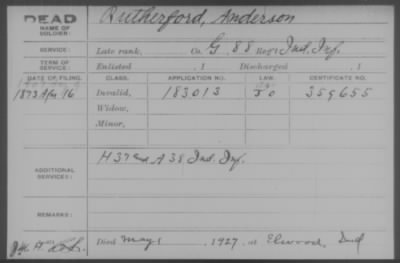 DEAD
NAME OF SOLDIER: Rutherford, Anderson
SERVICE: Late rank, Co. G, 88 Reg't Ind. Inf.
TERM OF SERVICE: Enlisted , 1 Discharged , 1
DATE OF FILING. CLASS. APPLICATION NO. LAW. CERTIFICATE NO.
1873 Apr 16 Invalid, 183013 359655
Widow,
Minor,
ADDITIONAL SERVICES: H 37 and A 38 Ind. Inf.
REMARKS:
Died May 1, 1927, at Elwood, Ind